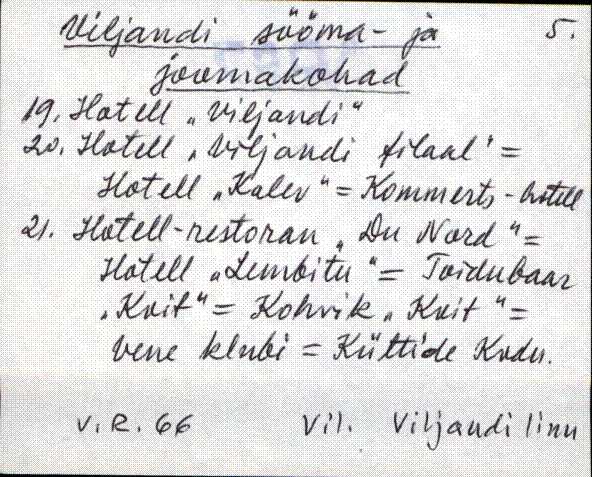 Viljandi sööma- ja 5.
joomakohad
19. Hotell „Viljandi“
20. Hotell „Viljandi filaal“ =
Hotell „Kalev“ = Kommerts-hotell
21. Hotell-restoran „Du Nord“ =
Hotell „Lembitu“ = Toidubaar
„Koit“ = Kohvik „Koit“ =
Vene klubi = Küttide Kodu.
V.R. 66 Vil. Viljandi linn